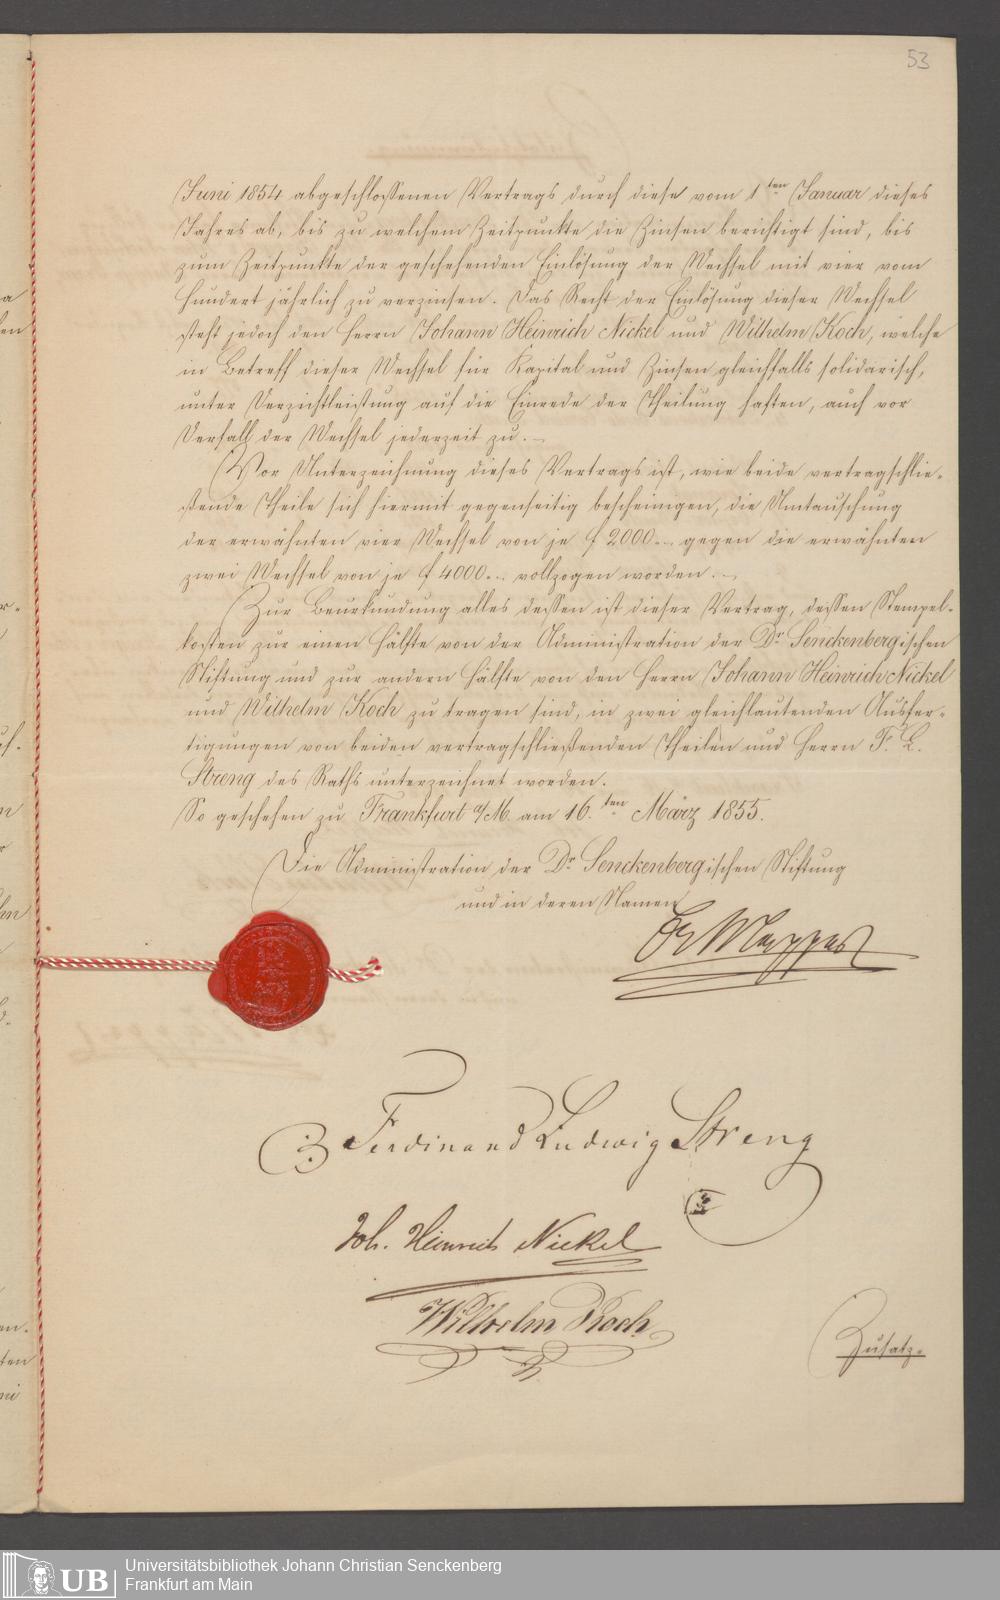 53
Juni 1854 abgeschlossenen Vertrags durch diese vom 1ten Januar dieses
Jahres ab, bis zu welchem Zeitpunkte die Zinsen berichtigt sind, bis
zum Zeitpunkte der geschehenden Einlösung der Wechsel mit vier vom
Hundert jährlich zu verzinsen. Das Recht der Einlösung dieser Wechsel
steht jedoch den Herrn Johann Heinrich Nickel und Wilhelm Koch, welche
in Betreff dieser Wechsel für Kapital und Zinsen gleichfalls solidarisch,
unter Verzichtleistung auf die Einrede der Theilung haften, auch vor
Verfall der Wechsel jederzeit zu. –
Vor Unterzeichnung dieses Vertrags ist, wie beide vertragschlie-
ßende Theile sich hiermit gegenseitig bescheinigen, die Umtauschung
der erwähnten vier Wechsel von je f 2000.-. gegen die erwähnten
zwei Wechsel von je f 4000.-. vollzogen worden. –
Zur Beurkundung alles dessen ist dieser Vertrag, dessen Stempel-
kosten zur einen Hälfte von der Administration der Dr. Senckenbergischen
Stiftung und zur andern Hälfte von den Herrn Johann Heinrich Nickel
und Wilhelm Koch zu tragen sind, in zwei gleichlautenden Ausfer-
tigungen von beiden vertragschließenden Theilen und Herrn F. L.
Streng des Raths unterzeichnet worden.
So geschehen zu Frankfurt a/M. am 16.ten März 1855.
Die Administration der Dr. Senckenbergischen Stiftung
und in deren Namen
Dr Mappes
Ferdinand Ludwig Streng
Joh. Heinrich Nickel
Wilhelm Koch
Zusatz-
UB
Universitätsbibliothek Johann Christian Senckenberg
Frankfurt am Main